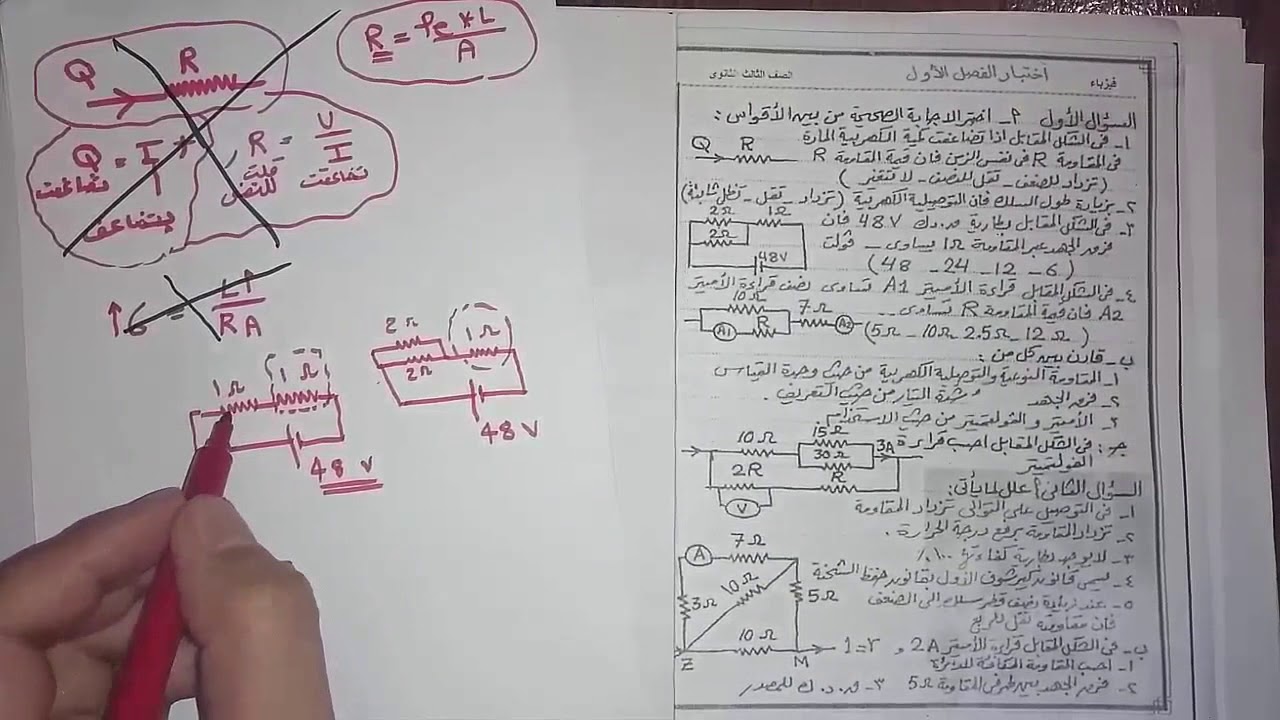 Q R
Q = I t
تضاعفت
يتضاعف
R = V / I
قلت للنصف
تضاعفت
R = ρe * L / A
↑ б = L↑ / R A
1Ω 1Ω
48 V
2Ω 1Ω
2Ω
48 V
فيزياء
اختبار الفصل الأول
الصف الثالث الثانوى
السؤال الأول أ- اختر الاجابة الصحيحة من بين الأقواس :
١- فى الشكل المقابل اذا تضاعفت كمية الكهربية المارة
فى المقاومة R فى نفس الزمن فان قيمة المقاومة R
Q R
( تزداد للضعف - تقل للنصف - لا تتغير )
٢- بزيادة طول السلك فان التوصيلية الكهربية (تزداد - تقل - تظل ثابتة)
٣- فى الشكل المقابل بطارية ق.د.ك 48V فان
فرق الجهد عبر المقاومة 1Ω يساوى - فولت
(48 - 24 - 12 - 6)
2Ω 1Ω
2Ω
48V
٤- فى الشكل المقابل قراءة الأميتر A1 تساوى نصف قراءة الأميتر
A2 فان قيمة المقاومة R تساوى ..
(5Ω - 10Ω 2.5Ω - 12Ω)
10Ω 7Ω
A1 R A2
ب- قارن بين كل من :
١- المقاومة النوعية والتوصيلية الكهربية من حيث وحدة القياس
٢- فرق الجهد وشدة التيار من حيث التعريف .
٣- الأميتر و الفولتميتر من حيث الاستخدام
جـ : فى الشكل المقابل احسب قراءة
الفولتميتر
10Ω 15Ω
30Ω 3A
2R R
V
السؤال الثانى أ علل لما يأتى :
١- فى التوصيل على التوالى تزداد المقاومة
٢- تزداد المقاومة برفع درجة الحرارة .
٣- لا يوجد بطارية كفاءتها ١٠٠٪
٤- يسمى قانون كيرشوف الأول بقانون حفظ الشحنة
٥- عند زيادة نصف قطر سلك الى الضعف
فان مقاومته تقل للربع
ب- فى الشكل المقابل قراءة الأميتر 2A و
١- احسب المقاومة المكافئة للدائرة
٢- فرق الجهد بين طرفى المقاومة 5Ω ٣- ق.د.ك للمصدر
A 7Ω
3Ω 10Ω 5Ω
10Ω
Z M